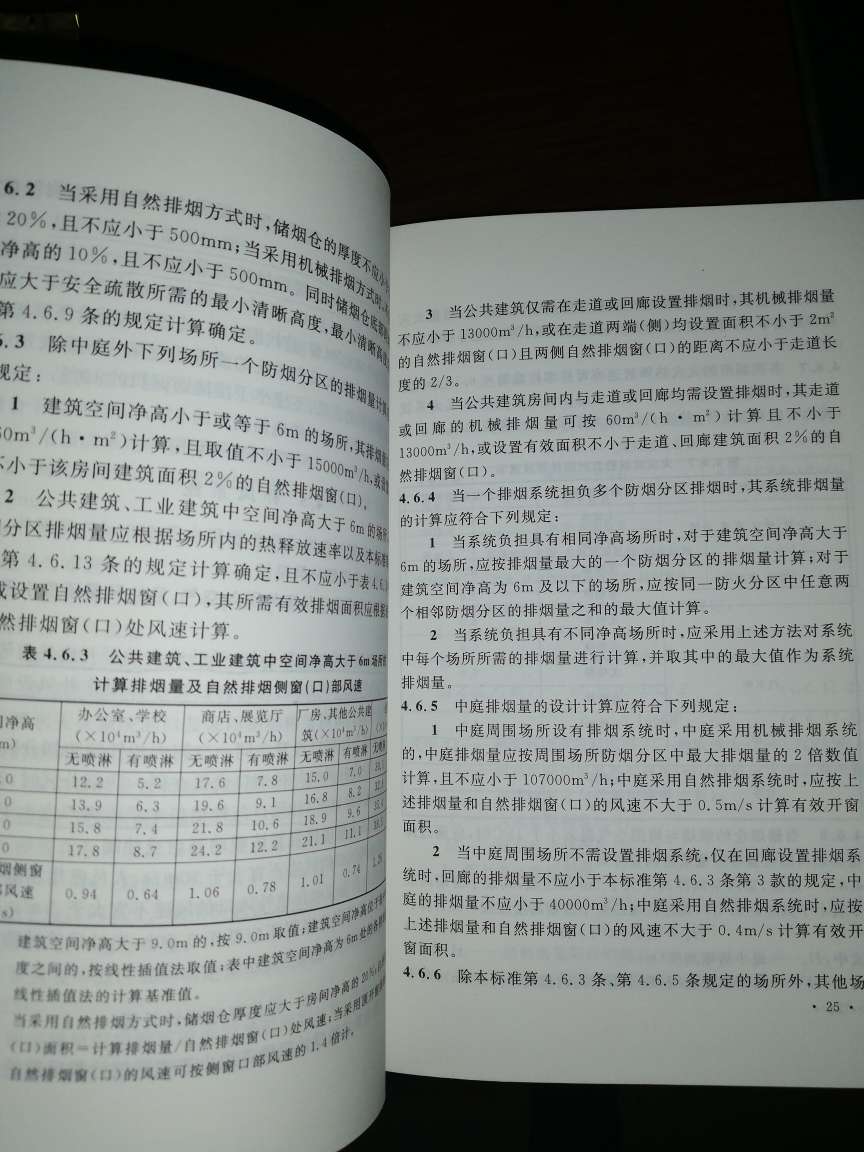 6.2 当采用自然排烟方式时，储烟仓的厚度不应小
20%，且不应小于500mm；当采用机械排烟方式时，
净高的10%，且不应小于500mm。同时储烟仓底部
应大于安全疏散所需的最小清晰高度，最小清晰高度
第4.6.9条的规定计算确定。
6.3 除中庭外下列场所一个防烟分区的排烟量计算
规定：
1 建筑空间净高小于或等于6m的场所，其排烟量
60m³/(h·m²)计算，且取值不小于15000m³/h，或设
不小于该房间建筑面积2%的自然排烟窗(口)。
2 公共建筑、工业建筑中空间净高大于6m的场所，
分区排烟量应根据场所内的热释放速率以及本标准
第4.6.13条的规定计算确定，且不应小于表4.6.
或设置自然排烟窗(口)，其所需有效排烟面积应根据
然排烟窗(口)处风速计算。
表4.6.3 公共建筑、工业建筑中空间净高大于6m场所的
计算排烟量及自然排烟侧窗(口)部风速
间净高 办公室、学校 商店、展览厅 厂房、其他公共建
m) (×10⁴m³/h) (×10⁴m³/h) 筑(×10⁴m³/h)
无喷淋 有喷淋 无喷淋 有喷淋 无喷淋 有喷淋 无喷
0 12.2 5.2 17.6 7.8 15.0 7.0
0 13.9 6.3 19.6 9.1 16.8 8.2
0 15.8 7.4 21.8 10.6 18.9 9.6
0 17.8 8.7 24.2 12.2 21.1 11.1
烟侧窗
部风速 0.94 0.64 1.06 0.78 1.01 0.74
s)
建筑空间净高大于9.0m的，按9.0m取值；建筑空间净高位于
度之间的，按线性插值法取值；表中建筑空间净高为6m处的各
线性插值法的计算基准值。
当采用自然排烟方式时，储烟仓厚度应大于房间净高的20%；
(口)面积=计算排烟量/自然排烟窗(口)处风速；当采用顶开窗
自然排烟窗(口)的风速可按侧窗口部风速的1.4倍计。
3 当公共建筑仅需在走道或回廊设置排烟时，其机械排烟量
不应小于13000m³/h，或在走道两端(侧)均设置面积不小于2m²
的自然排烟窗(口)且两侧自然排烟窗(口)的距离不应小于走道长
度的2/3。
4 当公共建筑房间内与走道或回廊均需设置排烟时，其走道
或回廊的机械排烟量可按60m³/(h·m²)计算且不小于
13000m³/h，或设置有效面积不小于走道、回廊建筑面积2%的自
然排烟窗(口)。
4.6.4 当一个排烟系统担负多个防烟分区排烟时，其系统排烟量
的计算应符合下列规定：
1 当系统负担具有相同净高场所时，对于建筑空间净高大于
6m的场所，应按排烟量最大的一个防烟分区的排烟量计算；对于
建筑空间净高为6m及以下的场所，应按同一防火分区中任意两
个相邻防烟分区的排烟量之和的最大值计算。
2 当系统负担具有不同净高场所时，应采用上述方法对系统
中每个场所所需的排烟量进行计算，并取其中的最大值作为系统
排烟量。
4.6.5 中庭排烟量的设计计算应符合下列规定：
1 中庭周围场所设有排烟系统时，中庭采用机械排烟系统
的，中庭排烟量应按周围场所防烟分区中最大排烟量的2倍数值
计算，且不应小于107000m³/h；中庭采用自然排烟系统时，应按上
述排烟量和自然排烟窗(口)的风速不大于0.5m/s计算有效开窗
面积。
2 当中庭周围场所不需设置排烟系统，仅在回廊设置排烟系
统时，回廊的排烟量不应小于本标准第4.6.3条第3款的规定，中
庭的排烟量不应小于40000m³/h；中庭采用自然排烟系统时，应按
上述排烟量和自然排烟窗(口)的风速不大于0.4m/s计算有效开
窗面积。
4.6.6 除本标准第4.6.3条、第4.6.5条规定的场所外，其他场
·25·